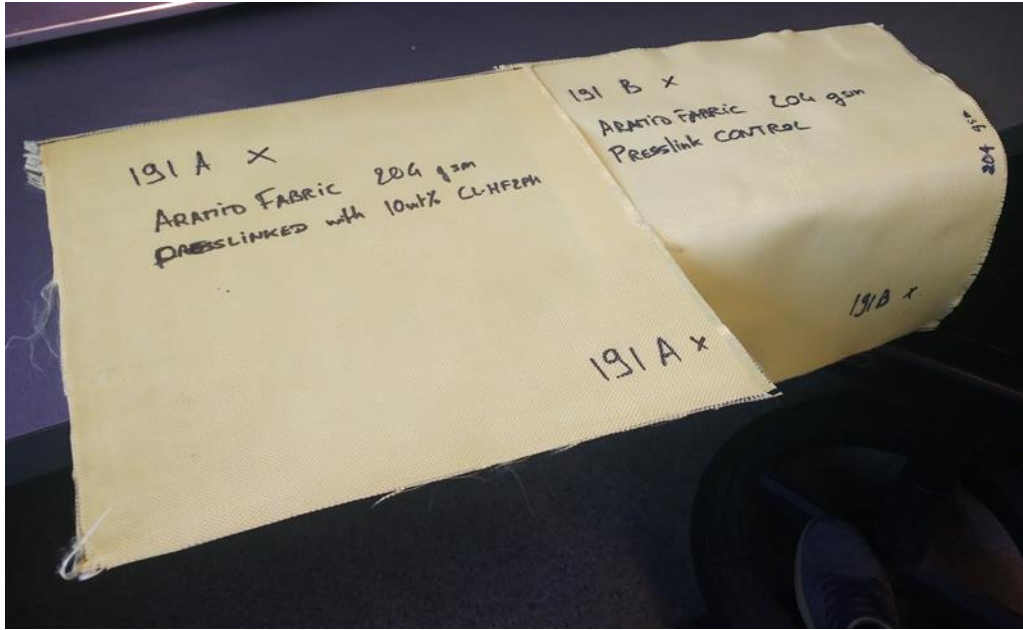 191 A x
ARAMID FABRIC 204 gsm
PRESSLINKED with 10wt% CL-HF2PH
191 A x
191 B x
ARAMID FABRIC 204 gsm
PRESSlink CONTROL
204 gsm
191B x